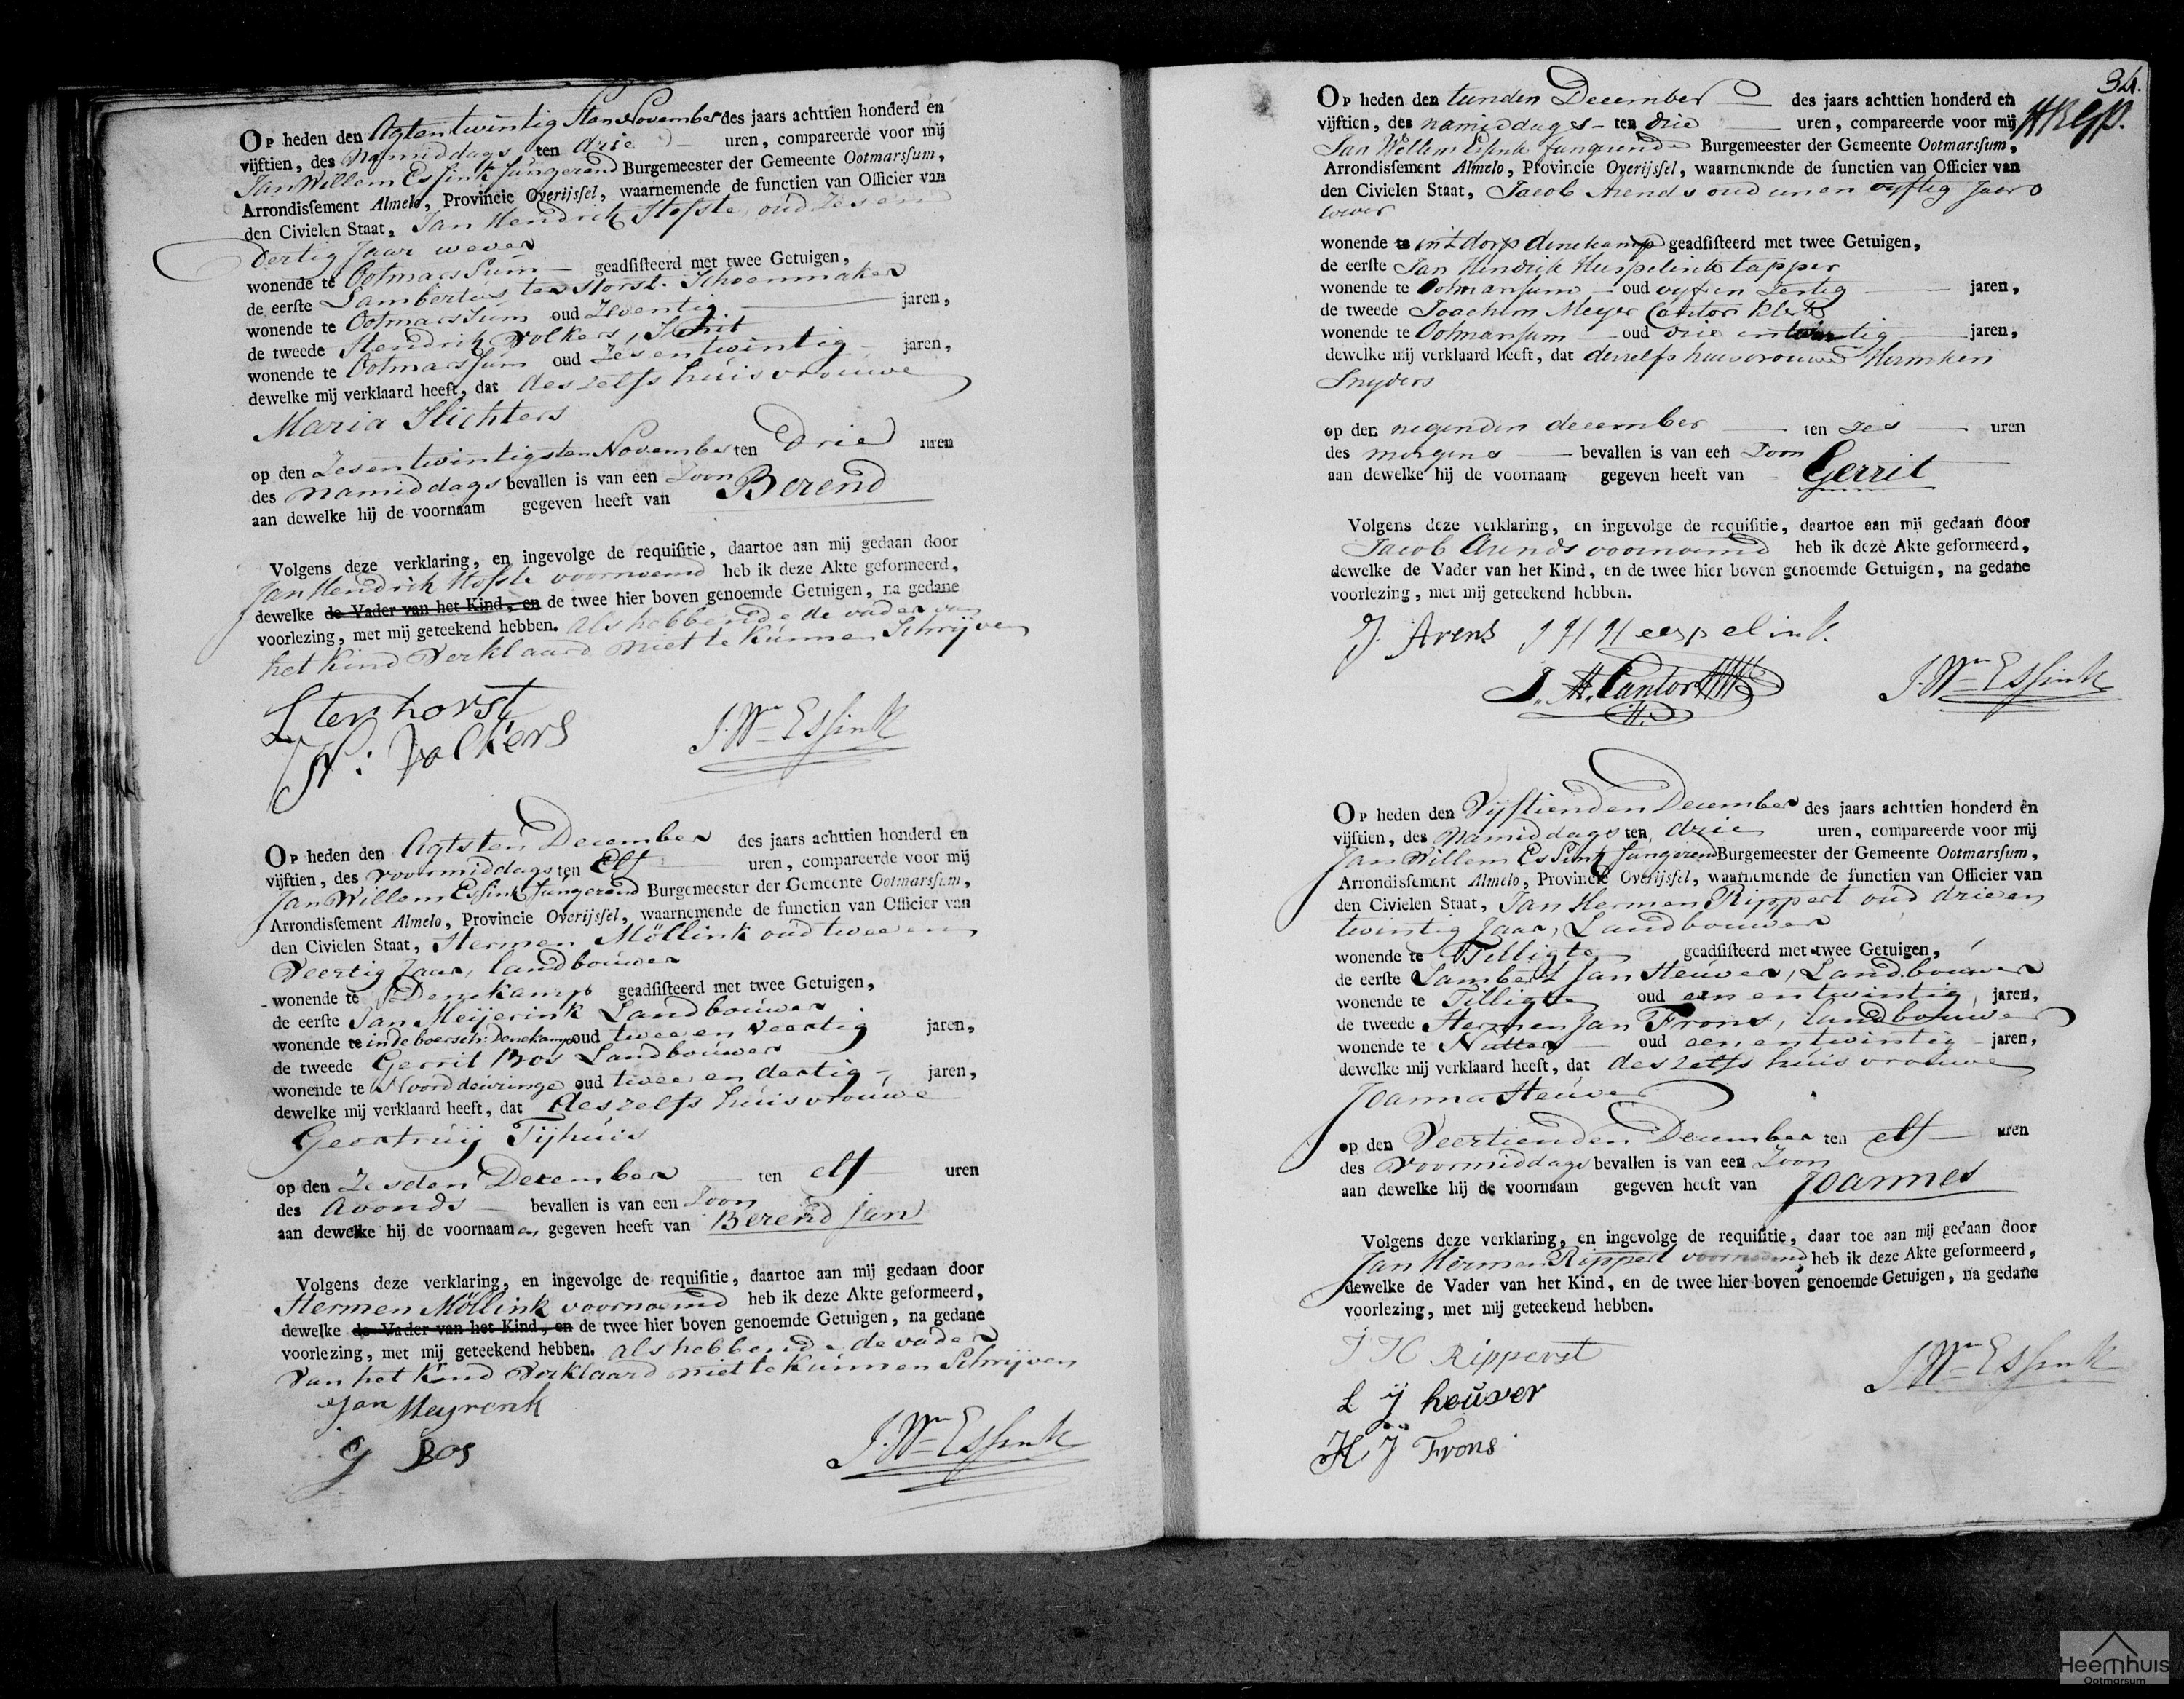 Op heden den Agtentwintigsten November des jaars achttien honderd en
vijftien, des Namiddags ten drie uren, compareerde voor mij
Jan Willem Essink fungerend Burgemeester der Gemeente Ootmarsum,
Arrondissement Almelo, Provincie Overijssel, waarnemende de functien van Officier van
den Civielen Staat, Jan Hendrik Hofste, oud Zesen
dertig Jaar wever
wonende te Ootmarssum geadsisteerd met twee Getuigen,
de eerste Lambertus ter Horst. Schoenmaker
wonende te Ootmarssum oud Zeventig jaren,
de tweede Hendrik Volkers,
wonende te Ootmarssum oud Zesentwintig jaren,
dewelke mij verklaard heeft, dat deszelfs huisvrouwe
Maria Slichters
op den Zesentwintigsten November ten Drie uren
des namiddags bevallen is van een Zoon
aan dewelke hij de voornaam gegeven heeft van Berend
Volgens deze verklaring, en ingevolge de requisitie, daartoe aan mij gedaan door
Jan Hendrik Hofste voornoemd heb ik deze Akte geformeerd,
dewelke de Vader van het Kind, en de twee hier boven genoemde Getuigen, na gedane
voorlezing, met mij geteekend hebben. als hebbende de vader van
het Kind Verklaard niet te kunnen Schrijven
L ter horst
H: Volkers J. Wm Essink
Op heden den Agtsten December des jaars achttien honderd en
vijftien, des voormiddags ten Elf uren, compareerde voor mij
Jan Willem Essink fungerend Burgemeester der Gemeente Ootmarsum,
Arrondissement Almelo, Provincie Overijssel, waarnemende de functien van Officier van
den Civielen Staat, Hermen Möllink oud twee en
Veertig Jaar, landbouwer
wonende te Denekamp geadsisteerd met twee Getuigen,
de eerste Jan Meijerink Landbouwer
wonende te in de boersch: Denekamp oud twee en Veertig jaren,
de tweede Gerrit Bos Landbouwer
wonende te Noorddeurninge oud twee en dertig jaren,
dewelke mij verklaard heeft, dat deszelfs huisvrouwe
Geertruij Tijhuis
op den Zesden December ten elf uren
des Avonds bevallen is van een Zoon
aan dewelke hij de voornaamen gegeven heeft van Berend Jan
Volgens deze verklaring, en ingevolge de requisitie, daartoe aan mij gedaan door
Hermen Möllink voornoemd heb ik deze Akte geformeerd,
dewelke de Vader van het Kind, en de twee hier boven genoemde Getuigen, na gedane
voorlezing, met mij geteekend hebben. als hebbende de vader
van het Kind Verklaard niet te Kunnen Schrijven
Jan Meyrenk
G Bos J. Wm Essink
34.
Op heden den tienden December des jaars achttien honderd en
vijftien, des namiddags ten drie uren, compareerde voor mij
Jan Willem Essink fungeerende Burgemeester der Gemeente Ootmarsum,
Arrondissement Almelo, Provincie Overijssel, waarnemende de functien van Officier van
den Civielen Staat, Jacob Arends oud een en vyftig Jaar
wever
wonende te int dorp denekamp geadsisteerd met twee Getuigen,
de eerste Jan Hendrik Heespelink tapper
wonende te Ootmarsum oud vyf en Zestig jaren,
de tweede Joachim Meyer Cantor Klerk
wonende te Ootmarsum oud drie en twintig jaren,
dewelke mij verklaard heeft, dat deszelfs huisvrouwe Hermken
Snyders
op den negenden december ten zes uren
des morgens bevallen is van een Zoon
aan dewelke hij de voornaam gegeven heeft van Gerrit
Volgens deze verklaring, en ingevolge de requisitie, daartoe aan mij gedaan door
Jacob Arends voornoemd heb ik deze Akte geformeerd,
dewelke de Vader van het Kind, en de twee hier boven genoemde Getuigen, na gedane
voorlezing, met mij geteekend hebben.
J. Arens J H Heespelink.
J. M. Cantor J. Wm Essink
Op heden den Vijftienden December des jaars achttien honderd en
vijftien, des Namiddags ten drie uren, compareerde voor mij
Jan Willem Essink fungerend Burgemeester der Gemeente Ootmarsum,
Arrondissement Almelo, Provincie Overijssel, waarnemende de functien van Officier van
den Civielen Staat, Jan Hermen Rippert oud drieen
twintig Jaar, Landbouwer
wonende te Tilligte geadsisteerd met twee Getuigen,
de eerste Lambert Jan Heuver, Landbouwer
wonende te Tilligte oud een en twintig, jaren,
de tweede Hermen Jan Frons, landbouwer
wonende te Nutter oud een en twintig jaren,
dewelke mij verklaard heeft, dat deszelfs huisvrouwe
Joanna Heuver
op den Veertienden December ten elf uren
des Voormiddags bevallen is van een Zoon
aan dewelke hij de voornaam gegeven heeft van Joannes
Volgens deze verklaring, en ingevolge de requisitie, daar toe aan mij gedaan door
Jan Hermen Rippert voornoemd heb ik deze Akte geformeerd,
dewelke de Vader van het Kind, en de twee hier boven genoemde Getuigen, na gedane
voorlezing, met mij geteekend hebben.
J H Ripperst
L J heuver J. Wm Essink
H J Frons
Heemhuis
Ootmarsum